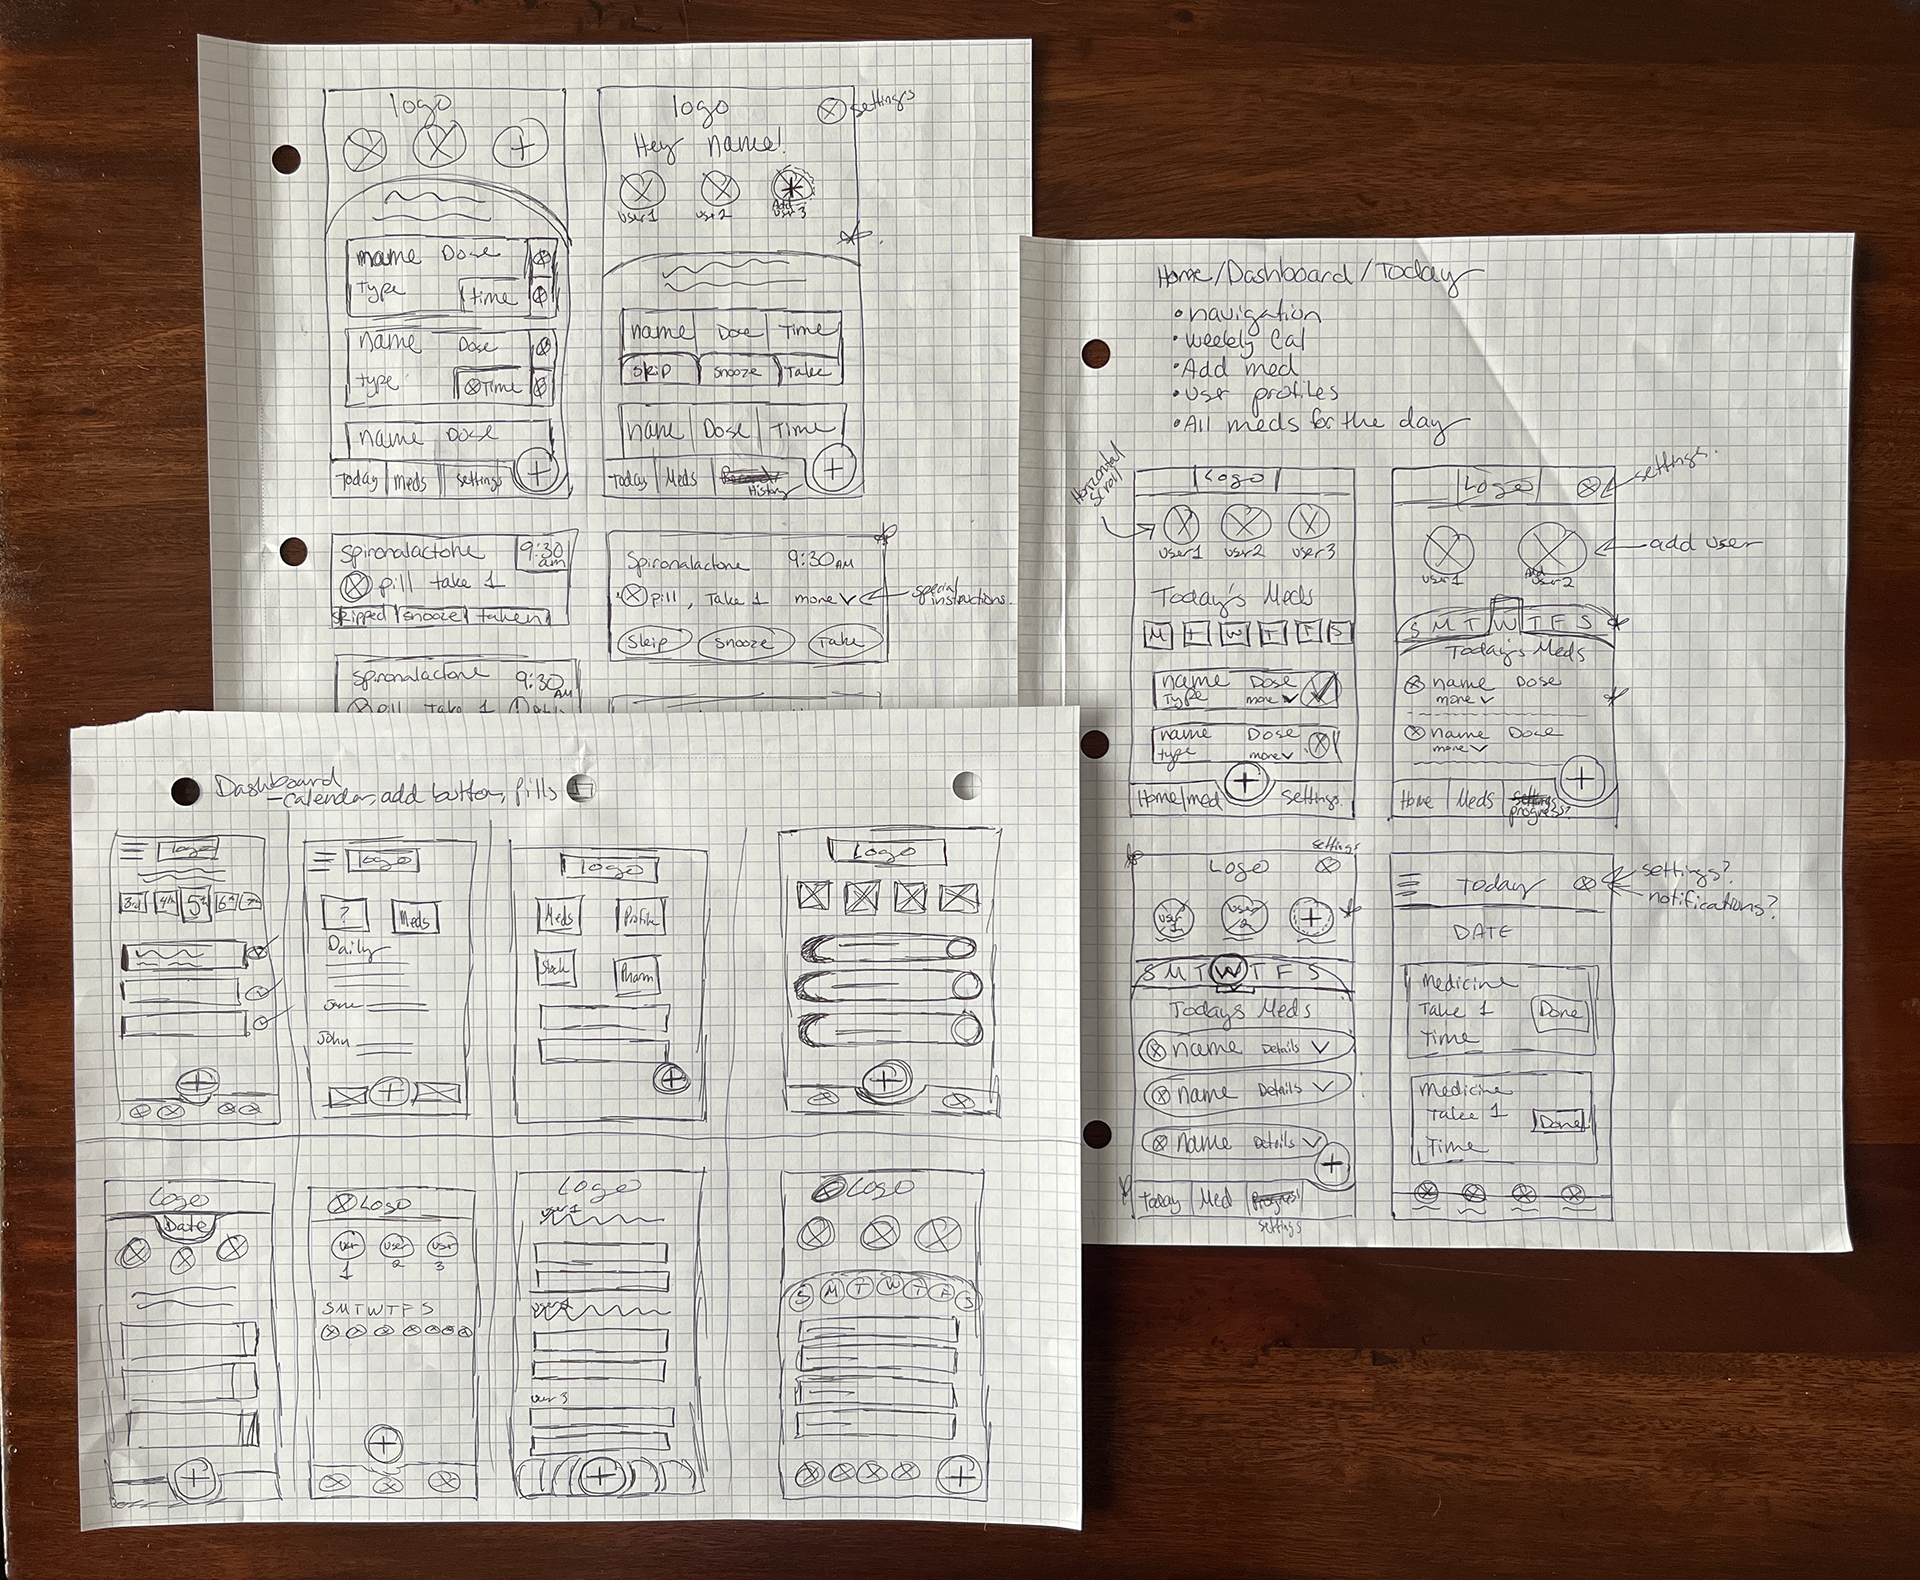 logo
name Dose
type time
name Dose
type Time
name Dose
Today meds settings
logo
settings
Hey name!
user1 user2 Add user 3
name Dose Time
Skip Snooze Take
name Dose Time
Today Meds
History
Spironalactone 9:30 am
pill take 1
skipped snooze taken
Spironalactone 9:30 AM
pill, Take 1 more
special instructions.
Skip Snooze Take
Spironalactone 9:30 AM
pill Take 1
Home/Dashboard/Today
• navigation
• weekly Cal
• Add med
• user profiles
• All meds for the day
Horizontal scroll
Logo
user1 user2 user3
Today's Meds
M T W T F S
name Dose
Type more
name Dose
type more
Home med settings
Logo
settings.
add user
user1 Add user 2
S M T W T F S
Today's Meds
name Dose
more
name Dose
more
Home Meds settings
progress?
settings
Logo
user 1 user 2
S M T W T F S
Todays Meds
name Details
name Details
name Details
Today Med Progress
settings
Today
settings?
notifications?
DATE
Medicine
Take 1 Done
Time
Medicine
Take 1 Done
Time
Dashboard
- calendar, add button, pills
logo
3rd 4th 5th 6th 7th
logo
? Meds
Daily
Jane
John
logo
Meds Profile
Stock Pharm
Logo
Logo
Date
Logo
user 1 user 2 user 3
S M T W T F S
Logo
user 1
user 3
Logo
S M T W T F S